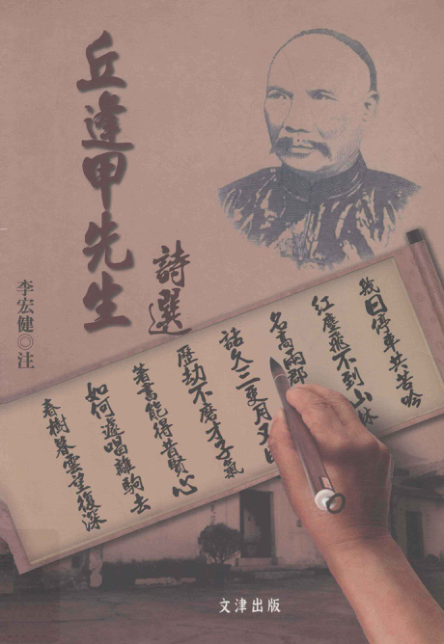 丘逢甲先生
詩選
李宏健◎注
幾日停車共苦吟
紅塵飛不到山林
名高兩郡
話久二更月又
歷劫不磨才子氣
著書能得昔賢心
如何遽唱離駒去
春樹暮雲望復深
文津出版